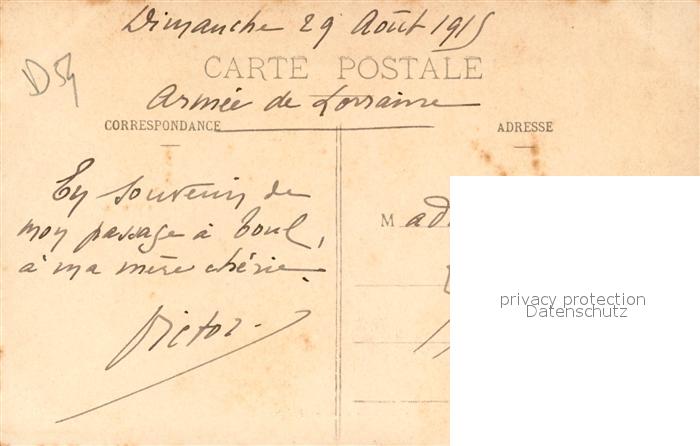 Dimanche 29 Août 1915
D54
CARTE POSTALE
Armée de Lorraine
CORRESPONDANCE
ADRESSE
En souvenir de
mon passage à Toul,
à ma mère chérie.
Victor.
Mad
privacy protection
Datenschutz